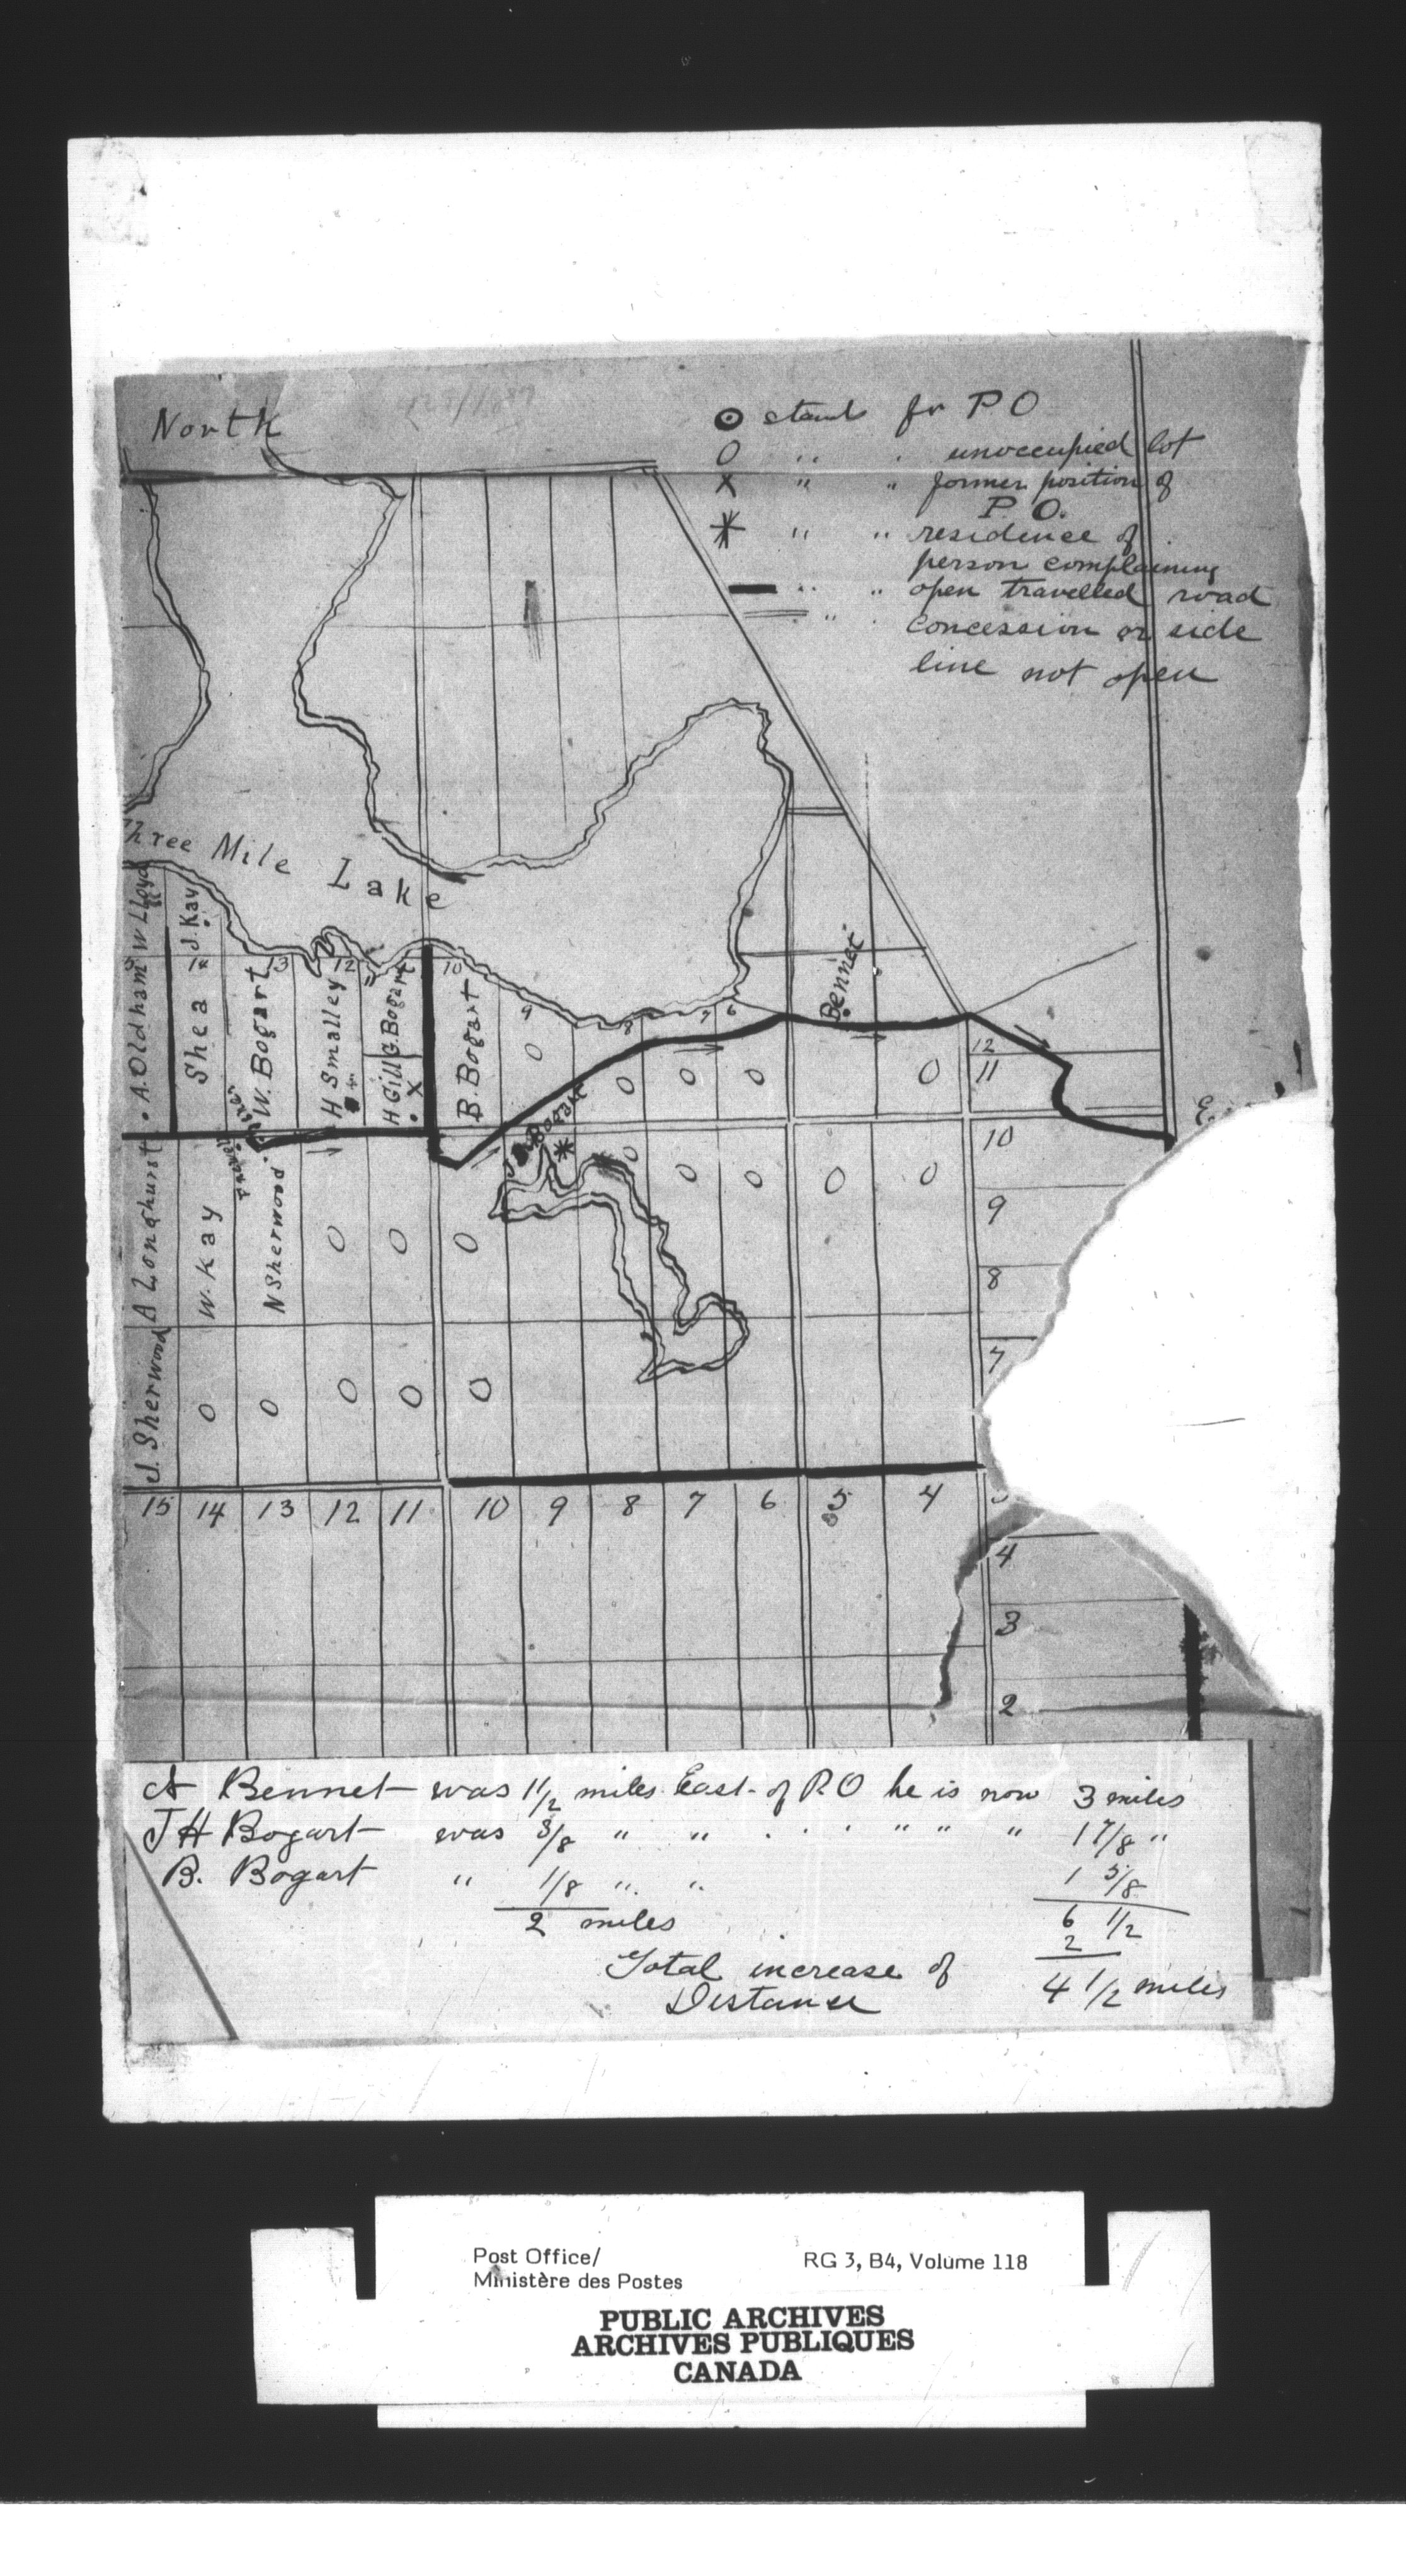 North
⊙ stands for P O
O " " unoccupied lot
X " " former position of
P. O.
* " " residence of
person complaining
▬ " " open travelled road
═ " " concession or side
line not open
Three Mile Lake
W Lloyd
J. Kay
14 13 12 10 9 8 7 6
A. Oldham
Shea
W. Bogart
H Smalley
G. Bogart
H Gill
X
B. Bogart
Bennet
O O O O O
12
11
10
9
8
7
J H Bogart *
O O O O O
A Longhurst
W. Kay
N Sherwood
O O O
J. Sherwood
O O O O O
15 14 13 12 11 10 9 8 7 6 5 4
4
3
2
A Bennet was 1 1/2 miles East of P.O he is now 3 miles
J H Bogart was 3/8 " " . . . " " " 1 7/8 "
B. Bogart " 1/8 " " 1 5/8
2 miles 6 1/2
2
Total increase of
Distance 4 1/2 miles
Post Office/
Ministère des Postes
RG 3, B4, Volume 118
PUBLIC ARCHIVES
ARCHIVES PUBLIQUES
CANADA